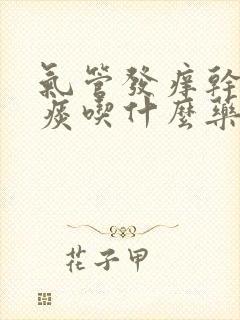 氣管發癢幹
痰喫什麼藥
花子甲